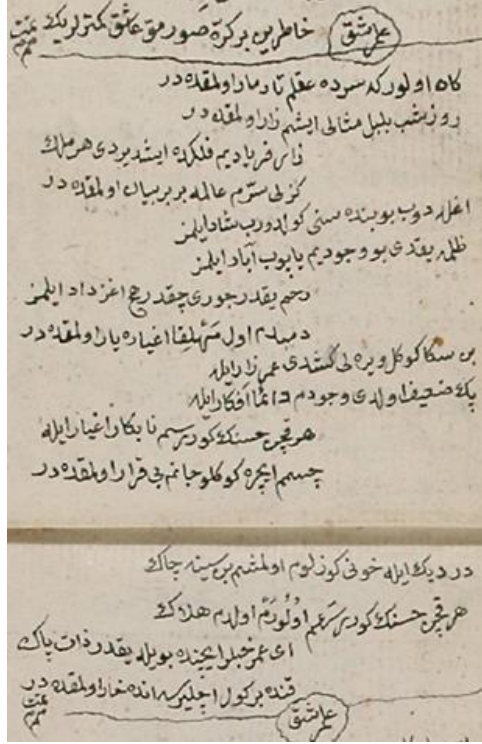 عمر عاشق خاطرین بر كره صورمق عاشق كمترلریك تمت م
كاه اولور كه سرده عقلم تارمار اولمقده در
روز شب بلبل مثالی ایشم زار اولمقده در
نای فریادیم فلكده ایشدیردی هر ملك
كزلی سرّم عالمه بر بر بیان اولمقده در
اغلدوب بو بنده سنی كولدورب شاد ایلمز
ظلمله یقدی بو وجودیم یاپوب آباد ایلمز
رحم یقدر جوری چقدر هج اغز داد ایلمز
دمبدم اول مهلقا اغیاره یار اولمقده در
بن سنكا كوكل ویره لی كشدی عمر زار ایله
پك ضعیف اولدی وجودم دائما افكار ایله
هر قچن حسنك كوررسم نابكار اغیار ایله
جسم ایچره كوكلو جانم بی قرار اولمقده در
دردیك ایله خونی كوزلوم اولمشم بن سینه چاك
هر قچن حسنك كوررسم اولورم اولدم هلاك
ای عمر خیلر ایچنده بویله یقدر ذات پاك
قنده بر كول اچلیرسه انده خار اولمقده در
تمت م عمر عاشق